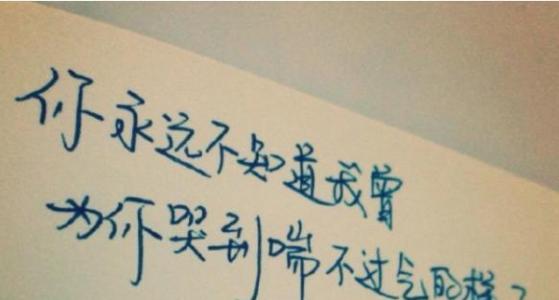 你永远不知道我曾
为你哭到喘不过气的样